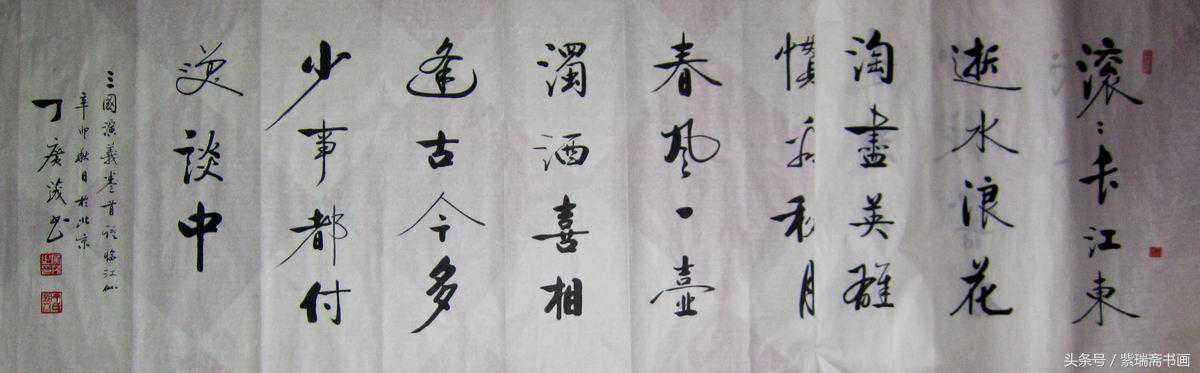 滚滚长江東
逝水浪花
淘盡英雄
惯看秋月
春風一壺
濁酒喜相
逢古今多
少事都付
笑談中
三國演義卷首詞臨江仙
辛卯秋日於北京
丁廣书
头条号 / 紫瑞斋书画